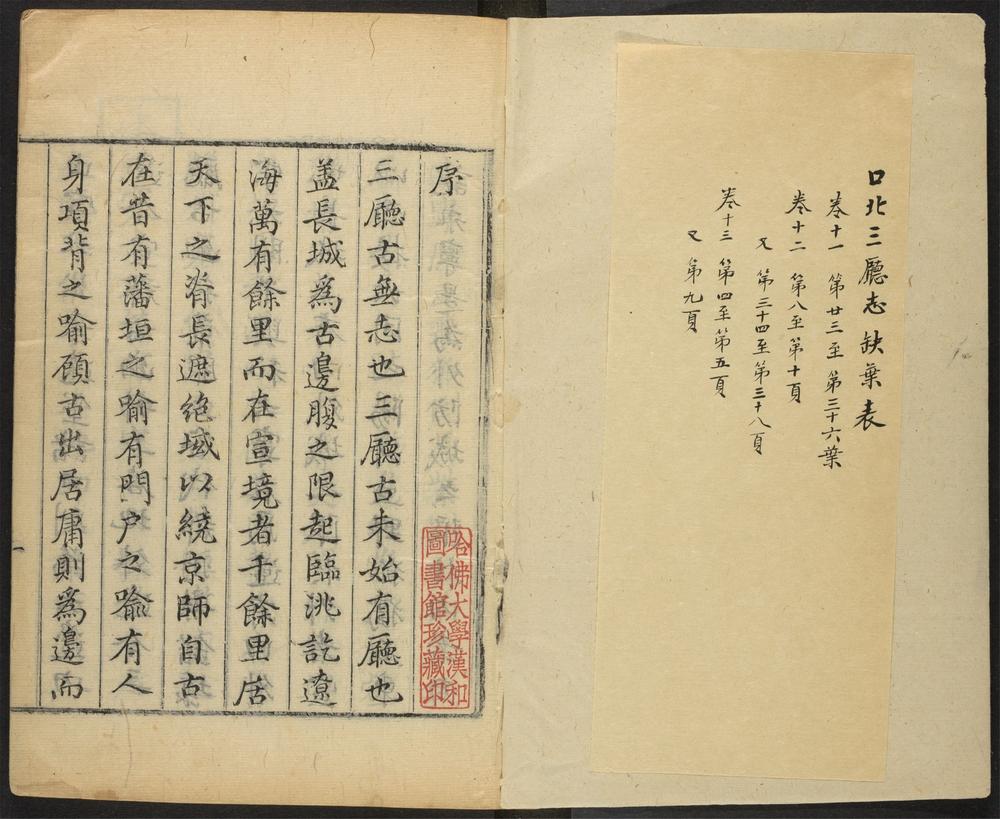 口北三廳志缺葉表
卷十一 第廿三至第三十六葉
卷十二 第八至第十頁
又 第三十四至第三十八頁
卷十三 第四至第五頁
又 第九頁
序
三廳古無志也三廳古未始有廳也
盖長城爲古邊腹之限起臨洮訖遼
海萬有餘里而在宣境者千餘里居
天下之脊長遮絶域以繞京師自古
在昔有藩垣之喻有門户之喻有人
身項背之喻顧古出居庸則爲邊而
哈佛大學漢和
圖書館珍藏印